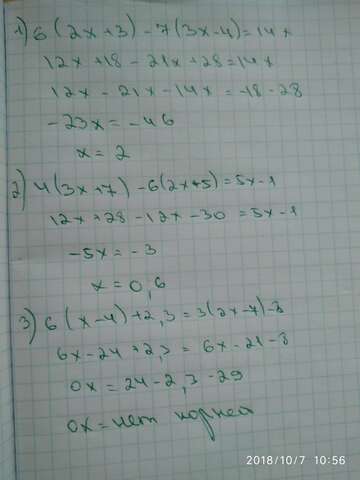 1) 6(2x+3)-7(3x-4)=14x
12x+18-21x+28=14x
12x-21x-14x=-18-28
-23x=-46
x=2
2) 4(3x+7)-6(2x+5)=5x-1
12x+28-12x-30=5x-1
-5x=-3
x=0,6
3) 6(x-4)+2,3=3(2x-7)-8
6x-24+2,3=6x-21-8
0x=24-2,3-29
0x=нет корней
2018/10/7 10:56